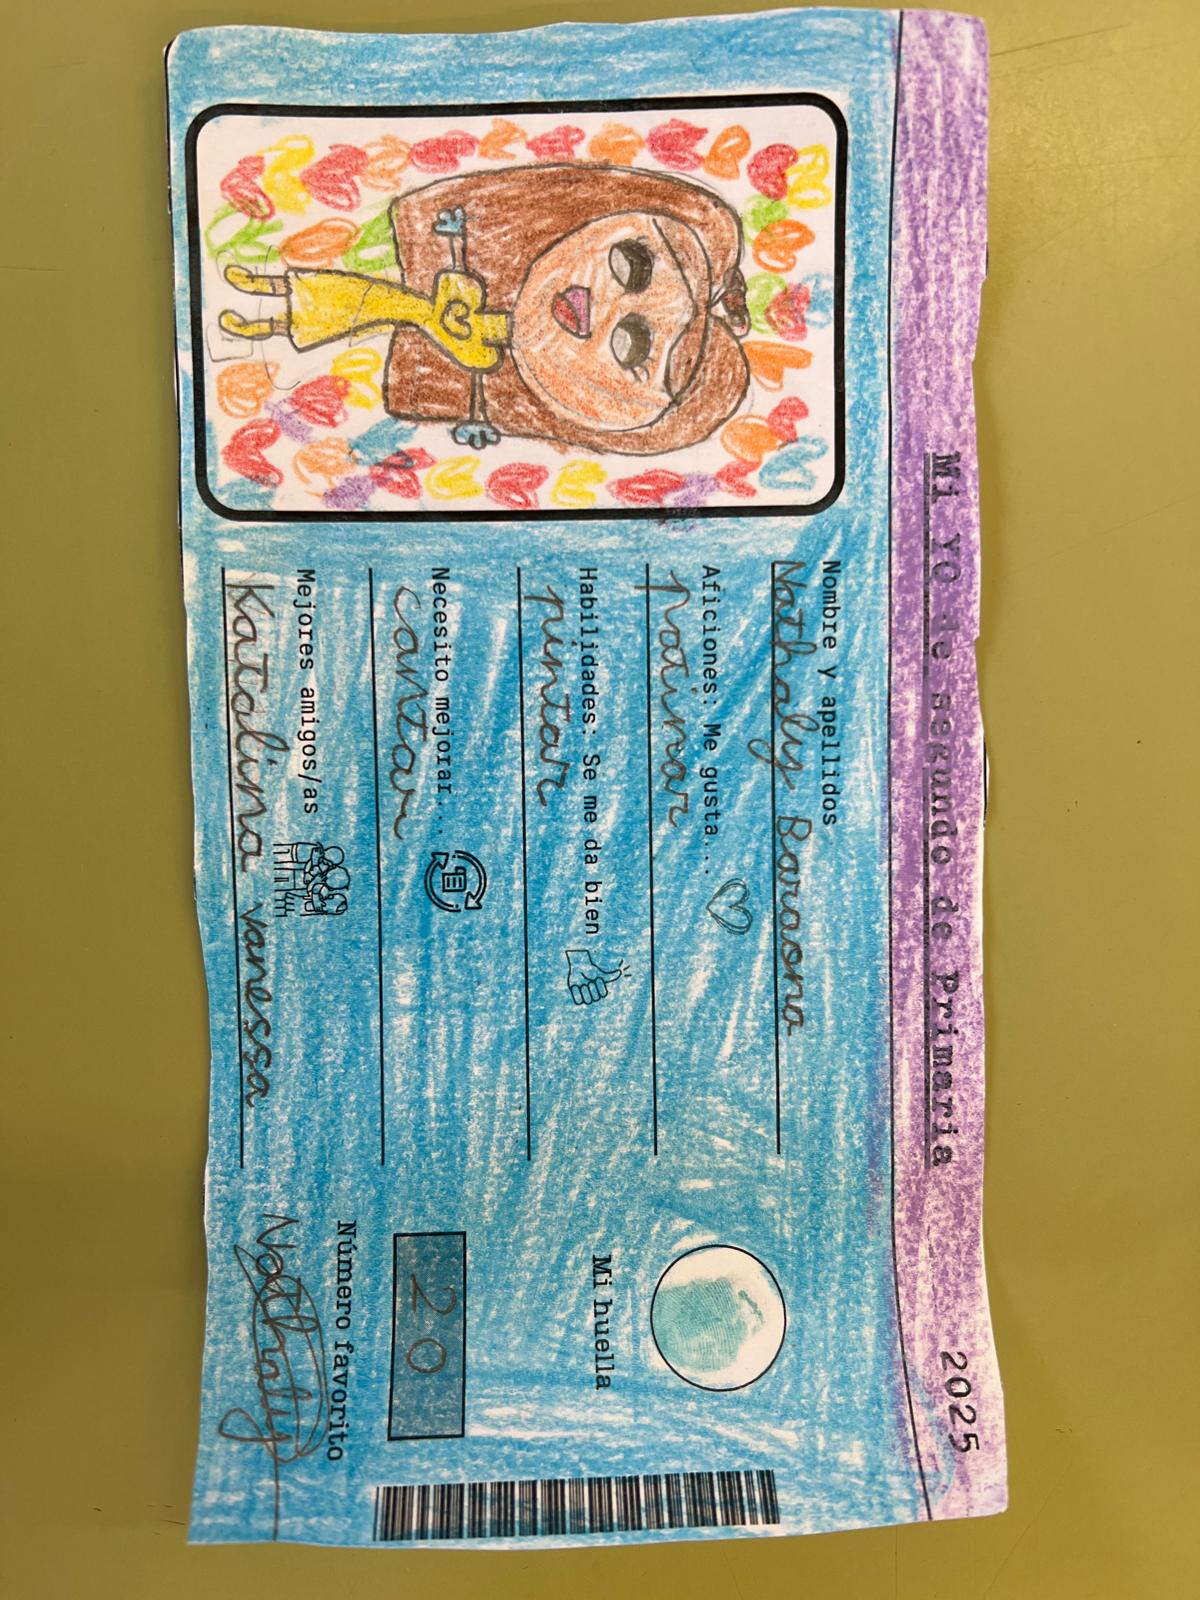 Mi YO de segundo de Primaria
2025
Nombre y apellidos
Nathaly Baraona
Aficiones: Me gusta...
patinar
Habilidades: Se me da bien
pintar
Necesito mejorar...
cantar
Mejores amigos/as
Katalina vanessa
Mi huella
20
Número favorito
Nathaly